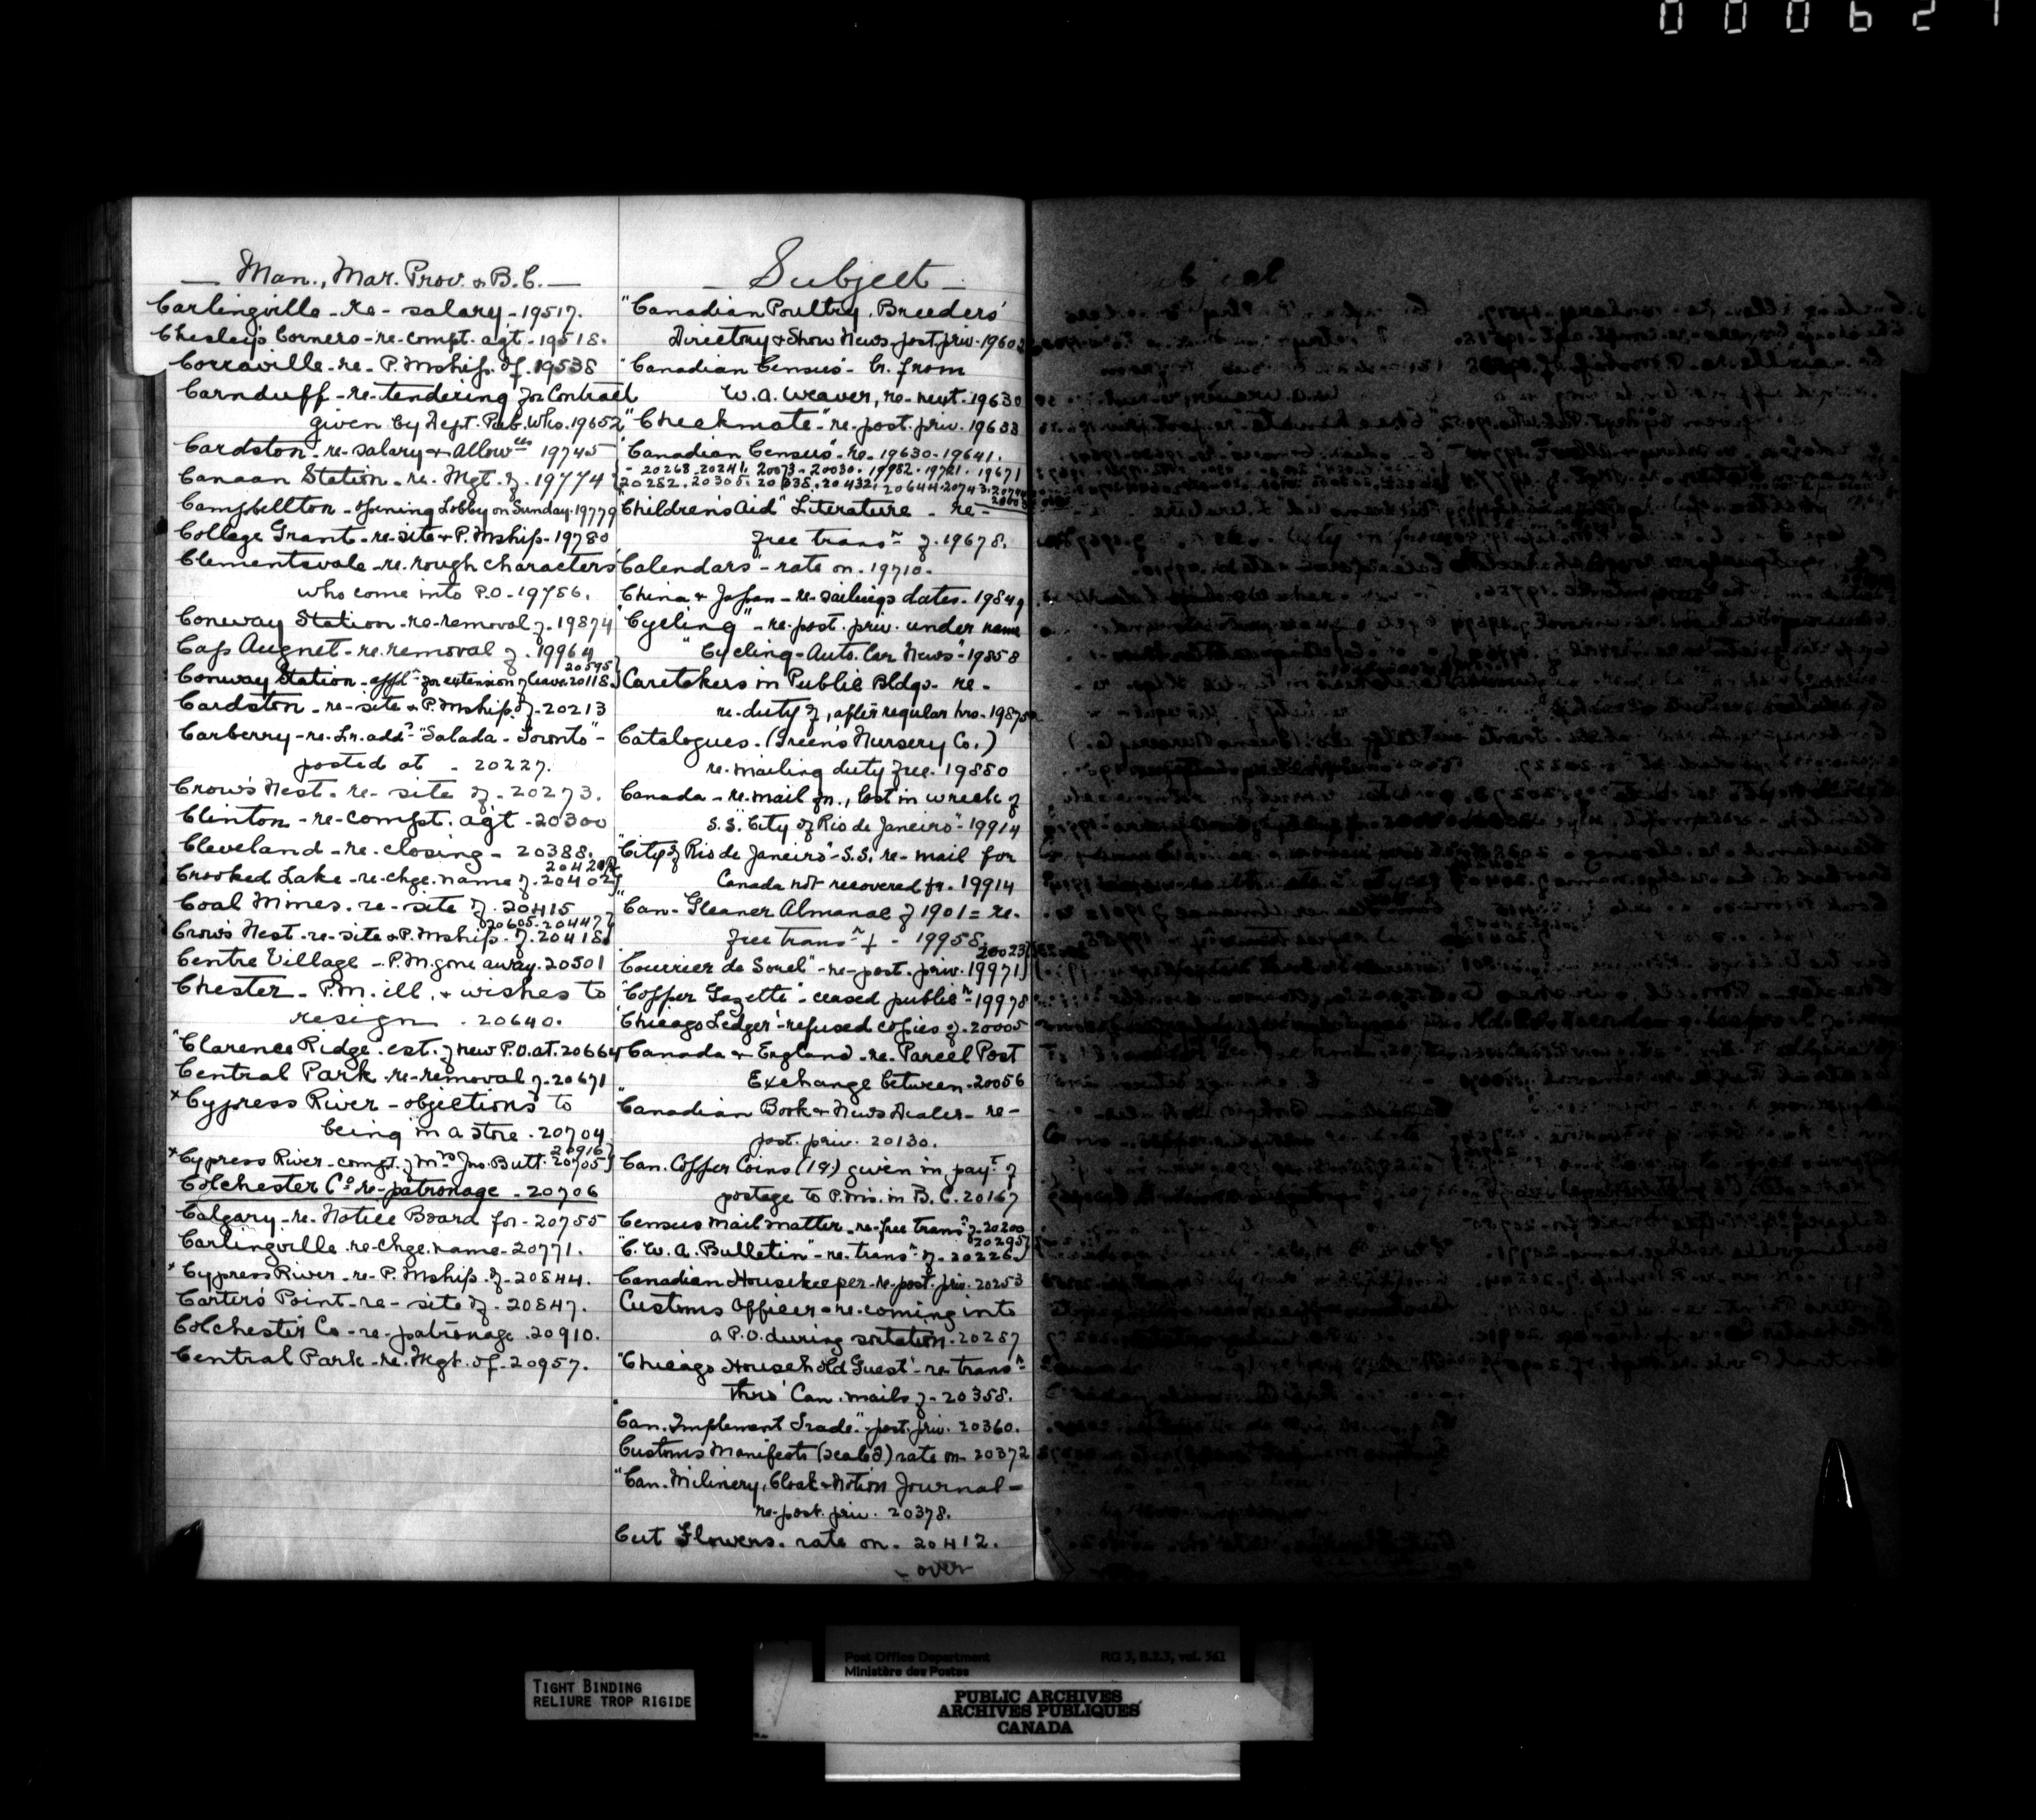 000627
— Man., Mar. Prov. & B.C. —
Carlingville - re - salary - 19517.
Chesley's Corners - re - compt. agt - 19518.
Corraville - re - P. Mship. of. 19538
Carnduff - re - tendering for Contract
given by Dept. Pub. Wks. 19652
Cardston - re - salary & Allowces 19745
Canaan Station - re. Mgt. of. 19774
Campbellton - opening Lobby on Sunday. 19779
College Grant - re - site & P. Mship - 19780
Clementsvale - re. rough characters
who come into P.O - 19786.
Conway Station - re - removal of. 19874
Cap Augnet - re. removal of. 19964
20595}
Conway Station - appln for extension of leave. 20118}
Cardston - re - site & P. Mship. of - 20213
Carberry - re. Lr. addd "Salada - Toronto" -
posted at - 20227.
Crow's Nest - re - site of - 20273.
Clinton - re - compt. agt - 20300
Cleveland - re - closing - 20388.
20420}
Crooked Lake - re - chge. name of. 20402}
Coal Mines. re - site of. 20415
20605 - 20447}
Crow's Nest - re - site & P. Mship. of. 20418}
Centre Village - P.M. gone away. 20501
Chester - P.M. ill, & wishes to
resign. 20640.
"Clarence Ridge. est. of new P.O. at. 20664
Central Park - re - removal of - 20671
x Cypress River - objections to
being in a store. 20704
20916}
x Cypress River - compt. of Mrs Jno. Butt. 20705}
Colchester Co re - patronage - 20706
Calgary - re. Notice Board for - 20755
Carlingville. re. chge. name - 20771.
x Cypress River - re - P. Mship. of - 20844.
Carters' Point - re - site of - 20847.
Colchester Co - re - patronage. 20910.
Central Park - re. Mgt. of - 20957.
— Subject —
"Canadian Poultry Breeders'
Directory & Show News - post priv. 1960
"Canadian Census" - Lr. from
W.A. Weaver, re - newt. 19630
"Checkmate" - re - post. priv. 19633
"Canadian Census" - re - 19630 - 19641.
- 20268. 20241. 20073 - 20030. 19982. 19721. 19671
20282. 20305. 20338. 20432. 20644. 20743.
"Children's Aid" Literature - re -
free transn of. 19678.
"Calendars" - rate on. 19710.
China & Japan - re - sailings dates. 19849
"Cycling" - re - post. priv. under name
"Cycling - Auto. Car News" - 19858
Caretakers in Public Bldgs - re -
re - duty of, after regular hrs. 1987
Catalogues. (Green's Nursery Co.)
re. mailing duty free. 19880
Canada - re. mail for, lost in wreck of
S.S. "City of Rio de Janeiro" - 19914
"City of Rio de Janeiro" - S.S. re - mail for
Canada not recovered fr. 19914
"Can - Gleaner Almanac of 1901 = re.
free transn of - 19958.
20023}
"Courrier de Sorel" - re - post. priv. 19971}
"Copper Gazette" - ceased publicn - 19978
"Chicago Ledger" - refused copies of. 20005
Canada & England - re. Parcel Post
Exchange between - 20056
"Canadian Book & News Dealer - re -
post. priv. 20130.
Can. Copper Coins (1¢) given in payt of
postage to P. Ms. in B.C. 20167
Census mail matter - re - free transn of - 20200
20295}
"C.W.A. Bulletin" - re. transn of - 20226}
Canadian Housekeeper - re - post. priv. 20253
Customs Officer - re - coming into
a P.O. during sortation. 20287
"Chicago Household Guest" - re transn
thro' Can. mails of - 20358.
"Can. Implement Trade" - post. priv. 20360.
Customs Manifests (sealed) rate on - 20372
"Can. Milinery, Cloak & Notion Journal -
re - post. priv. 20378.
Cut Flowers. rate on - 20412.
- over
TIGHT BINDING
RELIURE TROP RIGIDE
Post Office Department RG 3, B.2.3, vol. 561
Ministère des Postes
PUBLIC ARCHIVES
ARCHIVES PUBLIQUES
CANADA